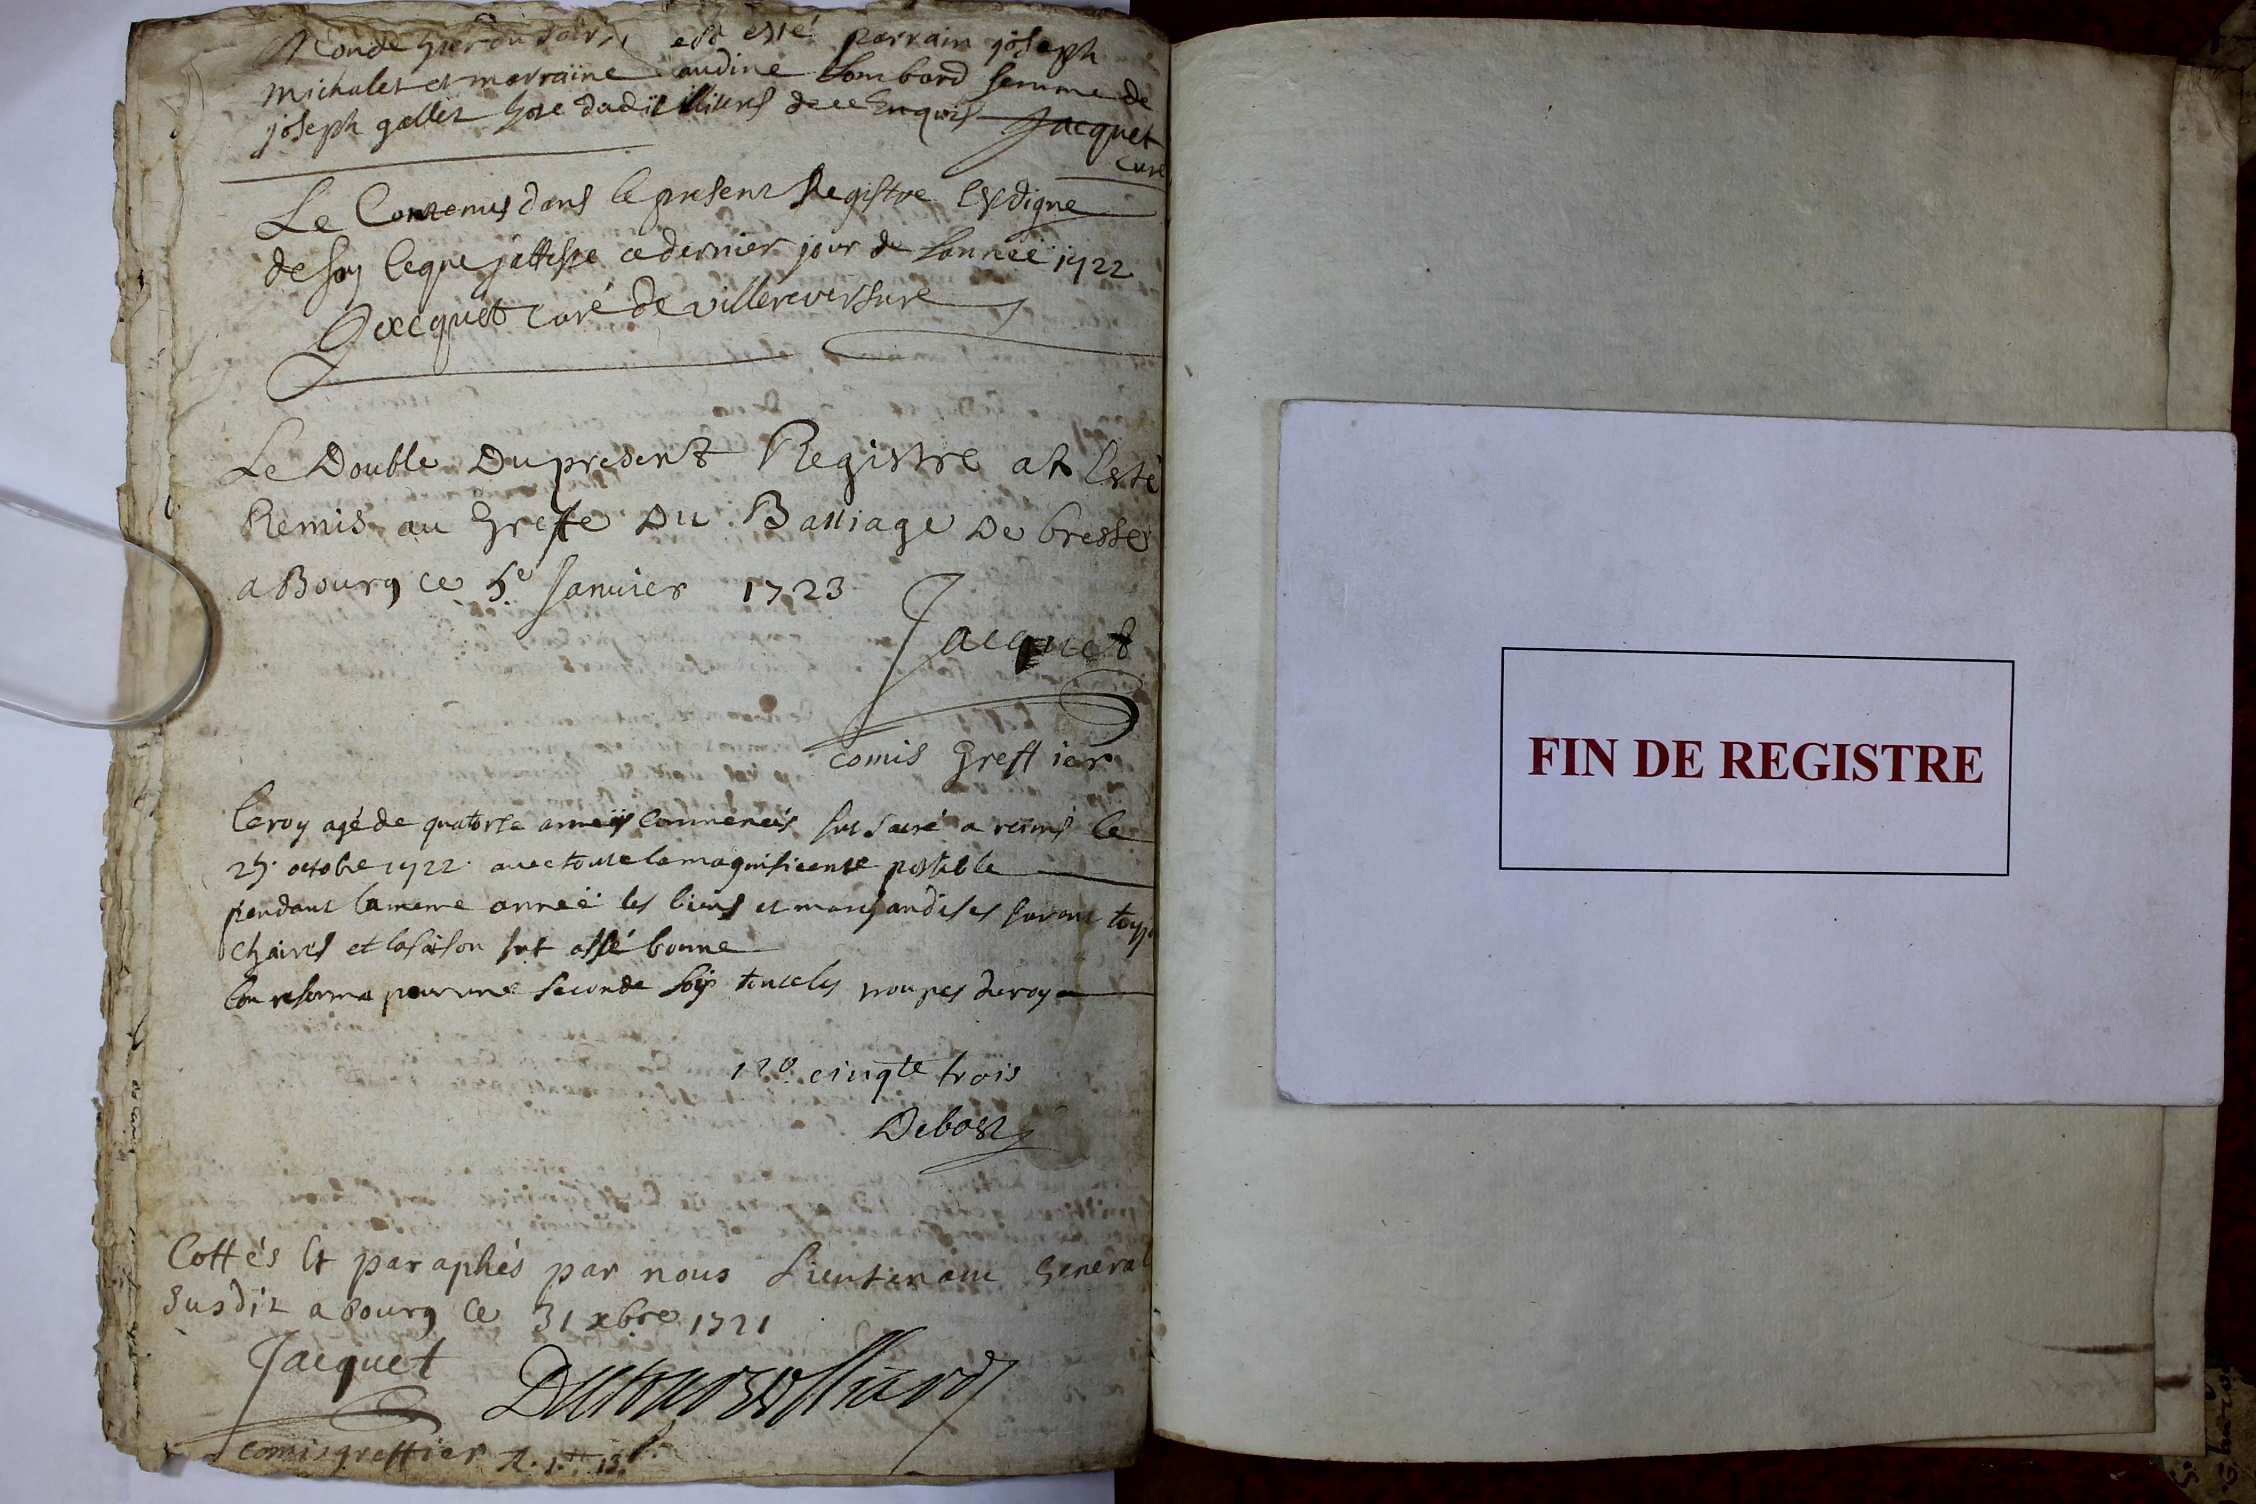 monde hier au soir, est esté parrain joseph
michalet et marraine audine Lombard femme de
joseph gallet hoste dudit illiers de ce enquis Jacquet
curé
Le Contenus dans le present Registre Est digne
de foy ce que j'atteste ce dernier jour de L'année 1722
Jacquet curé de villereversure
Le Double Du present Registre at Esté
Remis au Grefe Du Balliage De bresse
a Bourg ce 5e Janvier 1723
Jacquet
comis Greffier
Le roy agé de quatorse annéés Commencéés fut sacré a reims le
25. octobre 1722. avec toute la magnificense possible
pendant la meme année les biens et marchandises furent
chaires et la saison fut assé bonne
L'on reforma pour une seconde fois toute les troupes du roy
cinqte trois
Debost
Cottés Et paraphés par nous Lieutenant General
Susdit a bourg Ce 31 xbre 1721
Jacquet
comis greffier
FIN DE REGISTRE